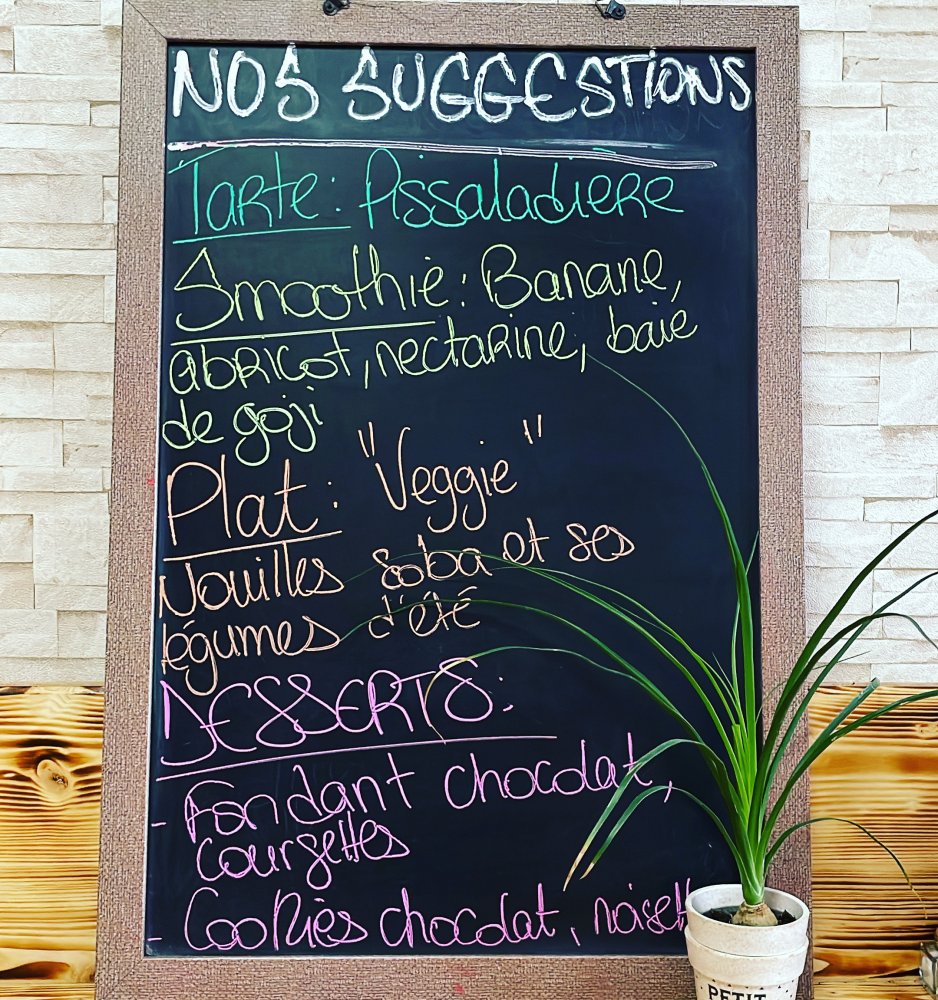 NOS SUGGESTIONS
Tarte: Pissaladière
Smoothie: Banane,
abricot, nectarine, baie
de goji
Plat: "Veggie"
Nouilles soba et ses
légumes d'été
DESSERTS:
- Fondant chocolat,
courgettes
- Cookies chocolat, noisett
PETIT